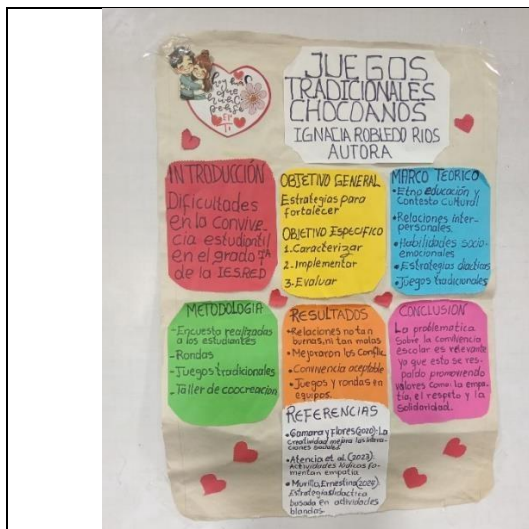 JUEGOS
TRADICIONALES
CHOCOANOS
IGNACIA ROBLEDO RIOS
AUTORA
INTRODUCCIÓN
Dificultades
en la Convive
cia estudiantil
en el grado 7ª
de la I.E.S.RED
OBJETIVO GENERAL
Estrategias para
fortalecer
OBJETIVO ESPECIFICO
1. Caracterizar
2. Implementar
3. Evaluar
MARCO TEÓRICO
• Etno educación y
Contexto Cultural
• Relaciones inter-
personales.
• Habilidades socio-
emocionales
• Estrategias diacticas
• Juegos tradicionales
METODOLOGIA
- Encuesta realizadas
a los estudiantes
- Rondas
- Juegos tradicionales
- Taller de coocreacion
RESULTADOS
• Relaciones no tan
buenas, ni tan malas
• Mejoraron los Conflic.
• Convivencia aceptable
• Juegos y rondas en
equipos.
CONCLUSIÓN
La problematica
Sobre la convivencia
escolar es relevante
ya que esto se res-
paldo promoviendo
valores como: la empa-
tia, el respeto y la
Solidaridad.
REFERENCIAS
• Gamara y Flores (2020): La
Creatividad mejora las interac
ciones sociales
• Atencia et al. (2023):
Actividades lúdicas fo-
mentan empatia
• Murillo, Ernestina (2024)
Estrategia didactica
basada en actividades
blandas.